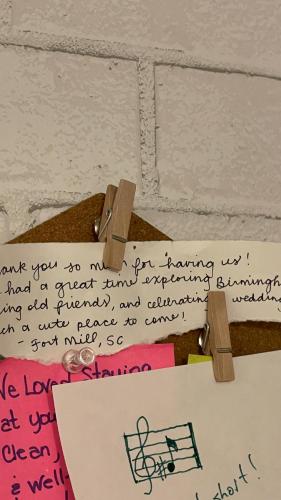 ank you so for having us!
had a great time exploring Birmingh
ing old friends, and celebrating wedding
ch a cute place to come!
- Fort Mill, SC
We Loved Staying
at you
Clean,
& well-
short!